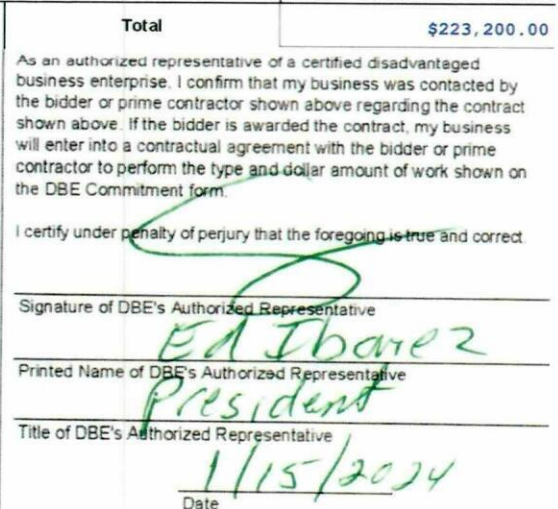 Total $223,200.00
As an authorized representative of a certified disadvantaged
business enterprise, I confirm that my business was contacted by
the bidder or prime contractor shown above regarding the contract
shown above. If the bidder is awarded the contract, my business
will enter into a contractual agreement with the bidder or prime
contractor to perform the type and dollar amount of work shown on
the DBE Commitment form.
I certify under penalty of perjury that the foregoing is true and correct
Signature of DBE's Authorized Representative
Ed Ibarez
Printed Name of DBE's Authorized Representative
President
Title of DBE's Authorized Representative
1/15/2024
Date